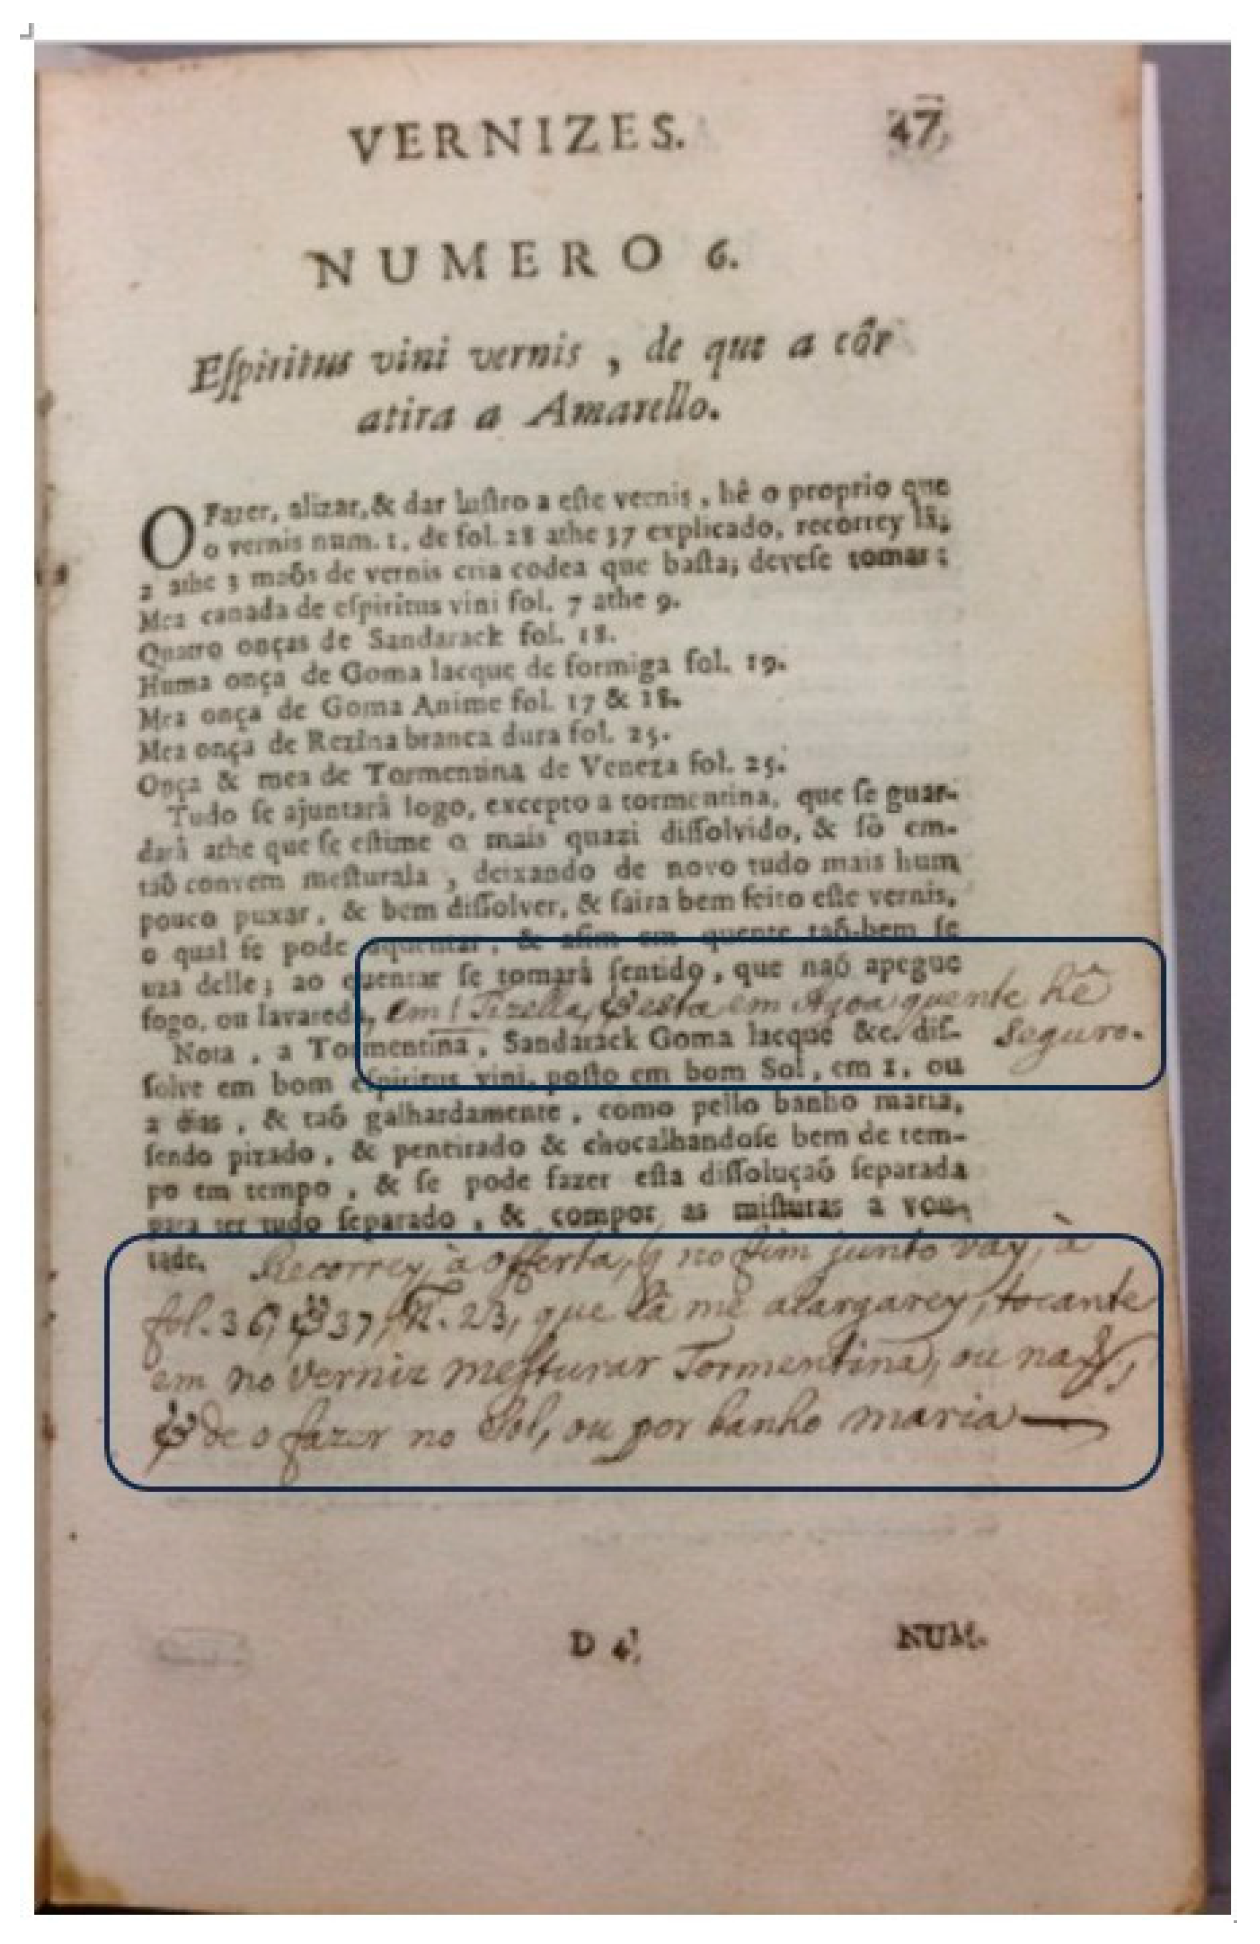 VERNIZES. 47
NUMERO 6.
Eſpiritus vini vernis, de que a côr
atira a Amarello.
O Fazer, alizar, & dar luſtro a eſte vernis, hê o proprio que
o vernis num. 1. de fol. 28 athe 37 explicado, recorrey lâ;
2 athe 3 maõs de vernis cria codea que baſta; deveſe tomar:
Mea canada de eſpiritus vini fol. 7 athe 9.
Quatro onças de Sandarack fol. 18.
Huma onça de Goma lacque de formiga fol. 19.
Mea onça de Goma Anime fol. 17 & 18.
Mea onça de Rezina branca dura fol. 25.
Onça & mea de Tormentina de Veneza fol. 25.
Tudo ſe ajuntarâ logo, excepto a tormentina, que ſe guar-
darâ athe que ſe eſtime o mais quazi diſſolvido, & ſô em-
taõ convem meſturala, deixando de novo tudo mais hum
pouco puxar, & bem diſſolver, & ſaira bem feito eſte vernis,
o qual ſe pode aquentar, & aſim em quente taõ-bem ſe
uza delle; ao quentar ſe tomarâ ſentido, que naõ apegue
fogo, ou lavareda, em Tizella, & esta em Agoa quente hê
Seguro.
Nota, a Tormentina, Sandarack Goma lacque &c. diſ-
ſolve em bom eſpiritus vini, poſto em bom Sol, em 1, ou
2 dias, & taõ galhardamente, como pello banho maria,
ſendo pizado, & peneirado & chocalhandoſe bem de tem-
po em tempo, & ſe pode fazer eſta diſſoluçaõ ſeparada
para ter tudo ſeparado, & compor as miſturas a von-
tade. Recorrey, à offerta, q no fim junto vay, à
fol. 36, & 37, N. 23, que lâ me alargarey, tocante
em no verniz meſturar Tormentina, ou naõ,
& de o fazer no Sol, ou por banho maria
D 4, NUM.